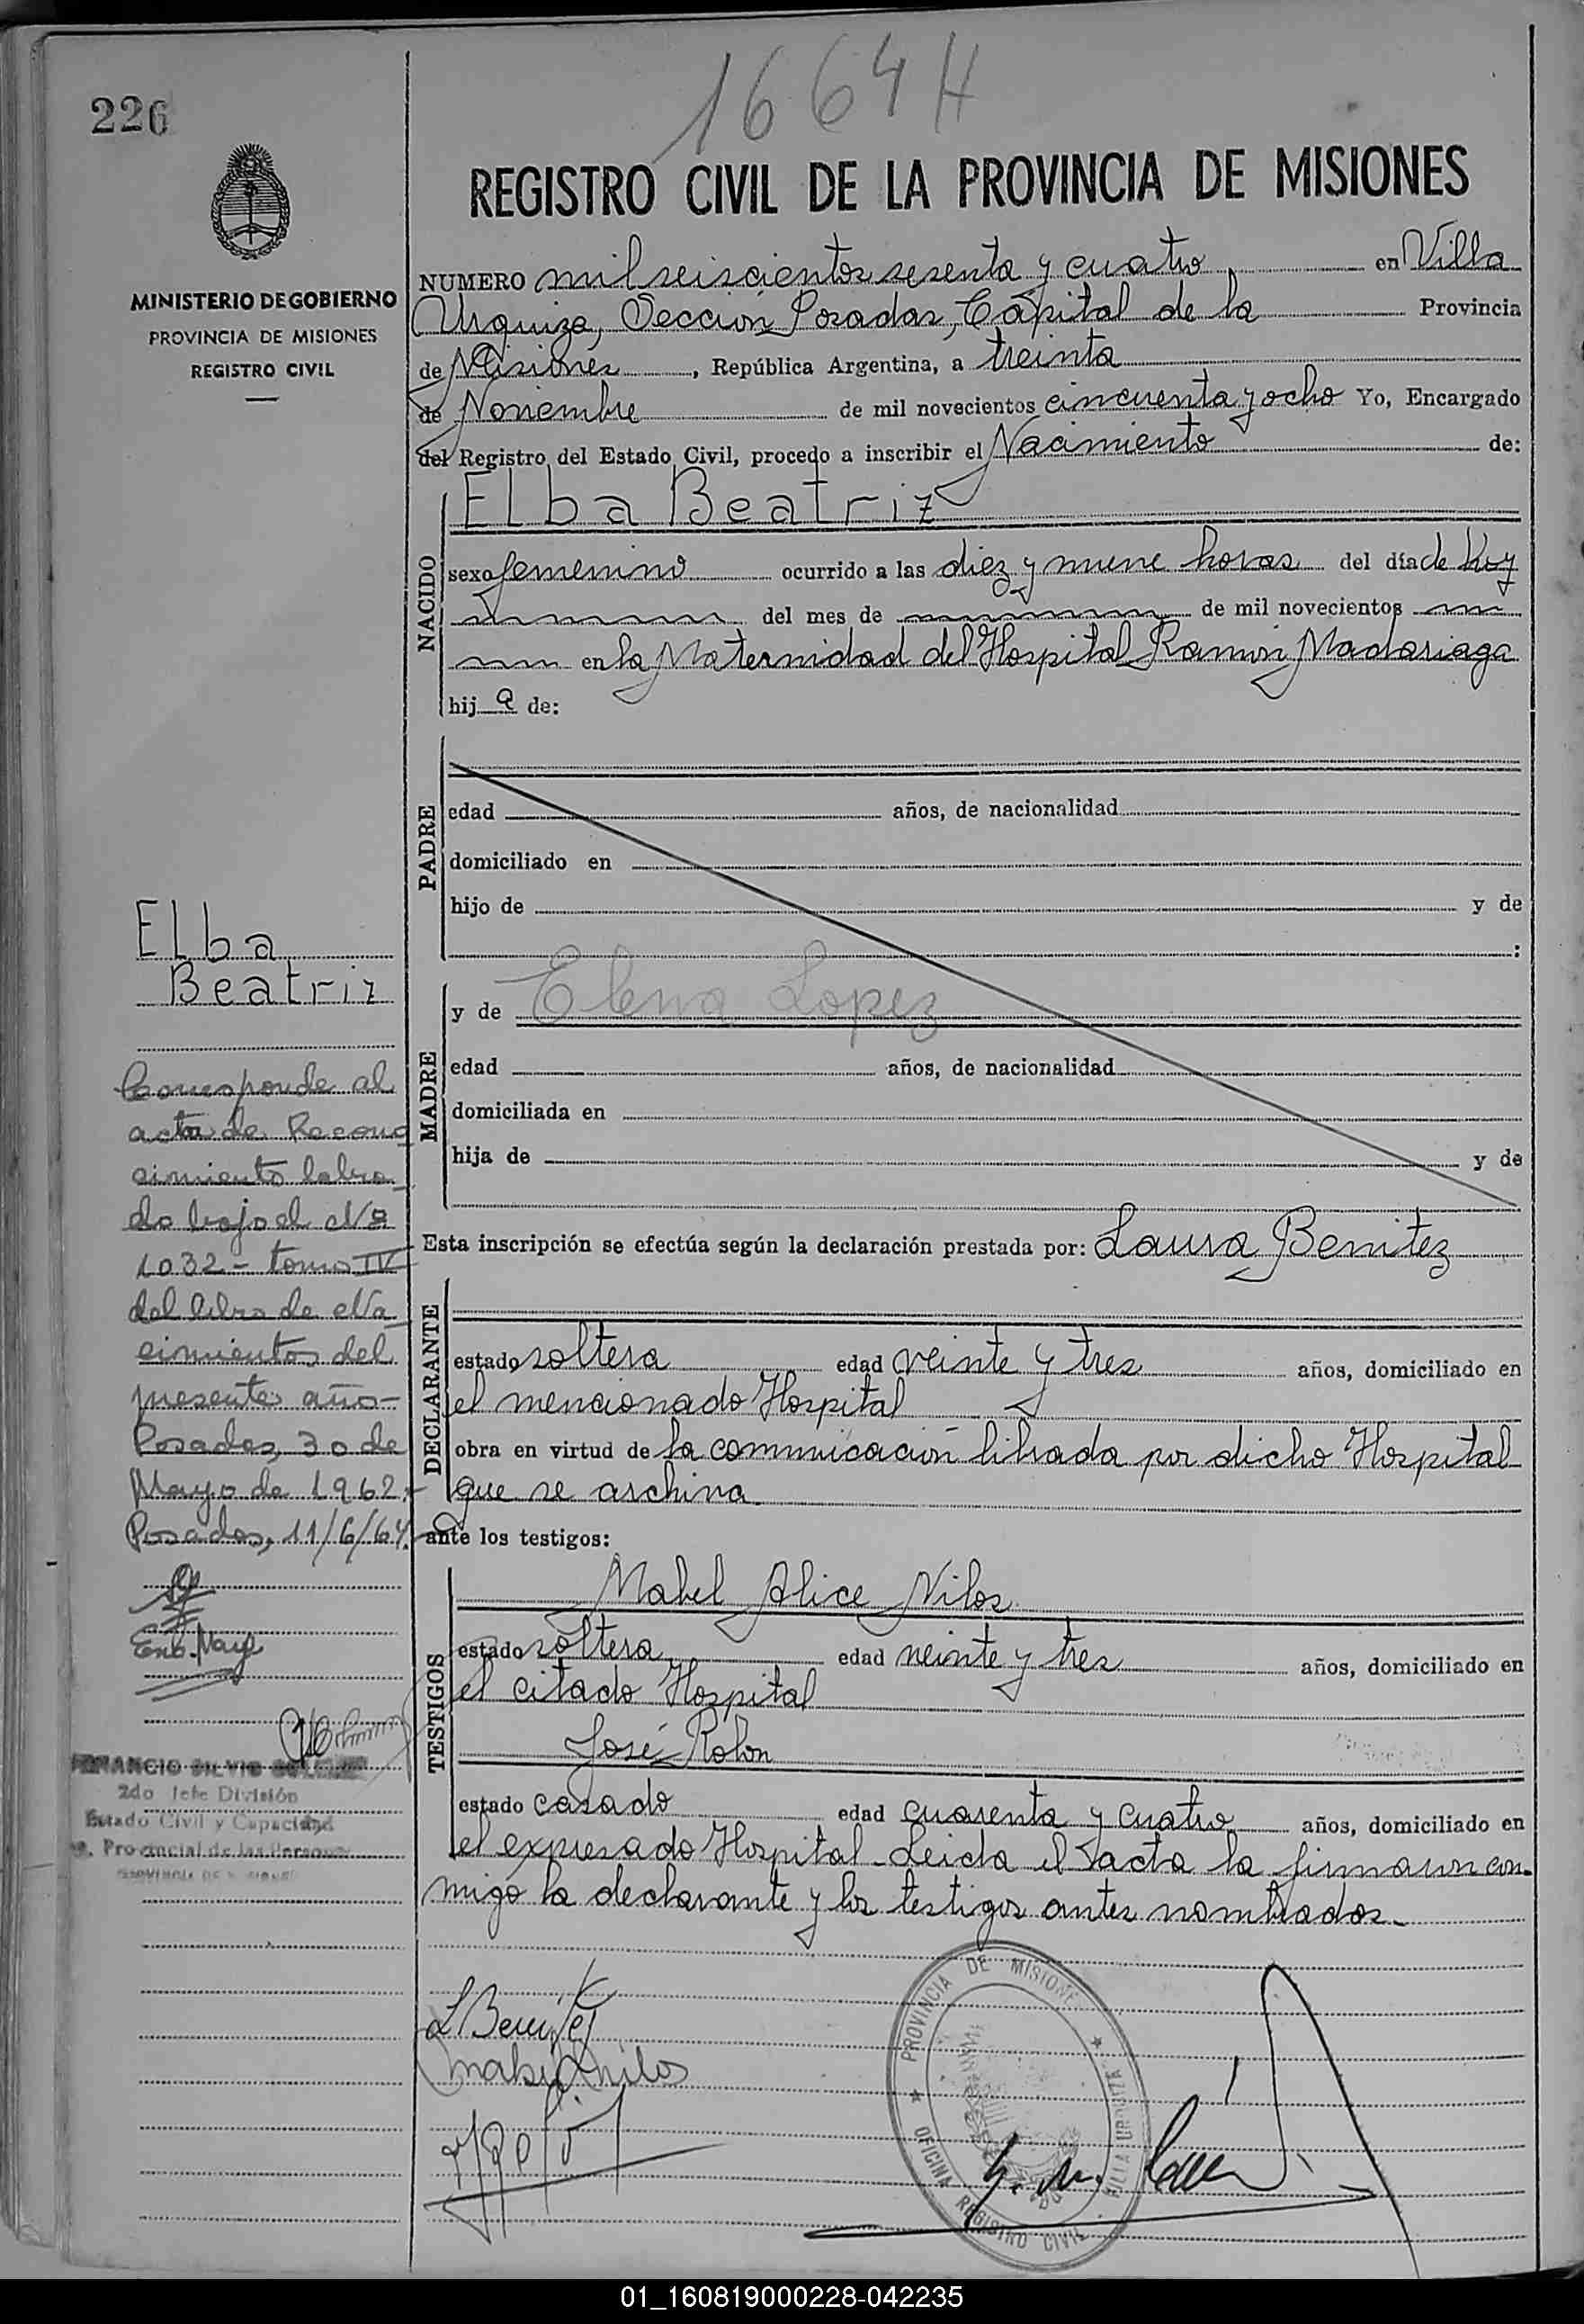 226
1664 H
MINISTERIO DE GOBIERNO
PROVINCIA DE MISIONES
REGISTRO CIVIL
REGISTRO CIVIL DE LA PROVINCIA DE MISIONES
NUMERO mil seiscientos sesenta y cuatro en Villa
Urquiza, Sección Posadas, Capital de la Provincia
de Misiones, República Argentina, a treinta
de Noviembre de mil novecientos cincuenta y ocho Yo, Encargado
del Registro del Estado Civil, procedo a inscribir el Nacimiento de:
NACIDO
Elba Beatriz
sexo femenino ocurrido a las diez y nueve horas del día de hoy
del mes de de mil novecientos
en la Maternidad del Hospital Ramón Madariaga
hija de:
PADRE
edad años, de nacionalidad
domiciliado en
hijo de y de
:
MADRE
y de Elena Lopez
edad años, de nacionalidad
domiciliada en
hija de y de
Esta inscripción se efectúa según la declaración prestada por: Laura Benitez
DECLARANTE
estado soltera edad veinte y tres años, domiciliado en
el mencionado Hospital
obra en virtud de la comunicación librada por dicho Hospital
que se archiva
ante los testigos:
TESTIGOS
Mabel Alice Nilos
estado soltera edad veinte y tres años, domiciliado en
el citado Hospital
José Rolon
estado casado edad cuarenta y cuatro años, domiciliado en
el expresado Hospital - Leida el acta la firmaron con-
migo la declarante y los testigos antes nombrados.-
L Benitez
Mabel A Nilos
J Rolón
PROVINCIA DE MISIONES
OFICINA REGISTRO CIVIL VILLA URQUIZA
Elba
Beatriz
Corresponde al
acta de Recono
cimiento labra-
do bajo el Nº
1032 - tomo IV
del libro de Na-
cimientos del
presente año -
Posadas, 30 de
Mayo de 1962.-
Posadas, 11/6/64.
SILVIO
2do Jefe División
Estado Civil y Capacidad
Provincial de las Personas
01_160819000228-042235